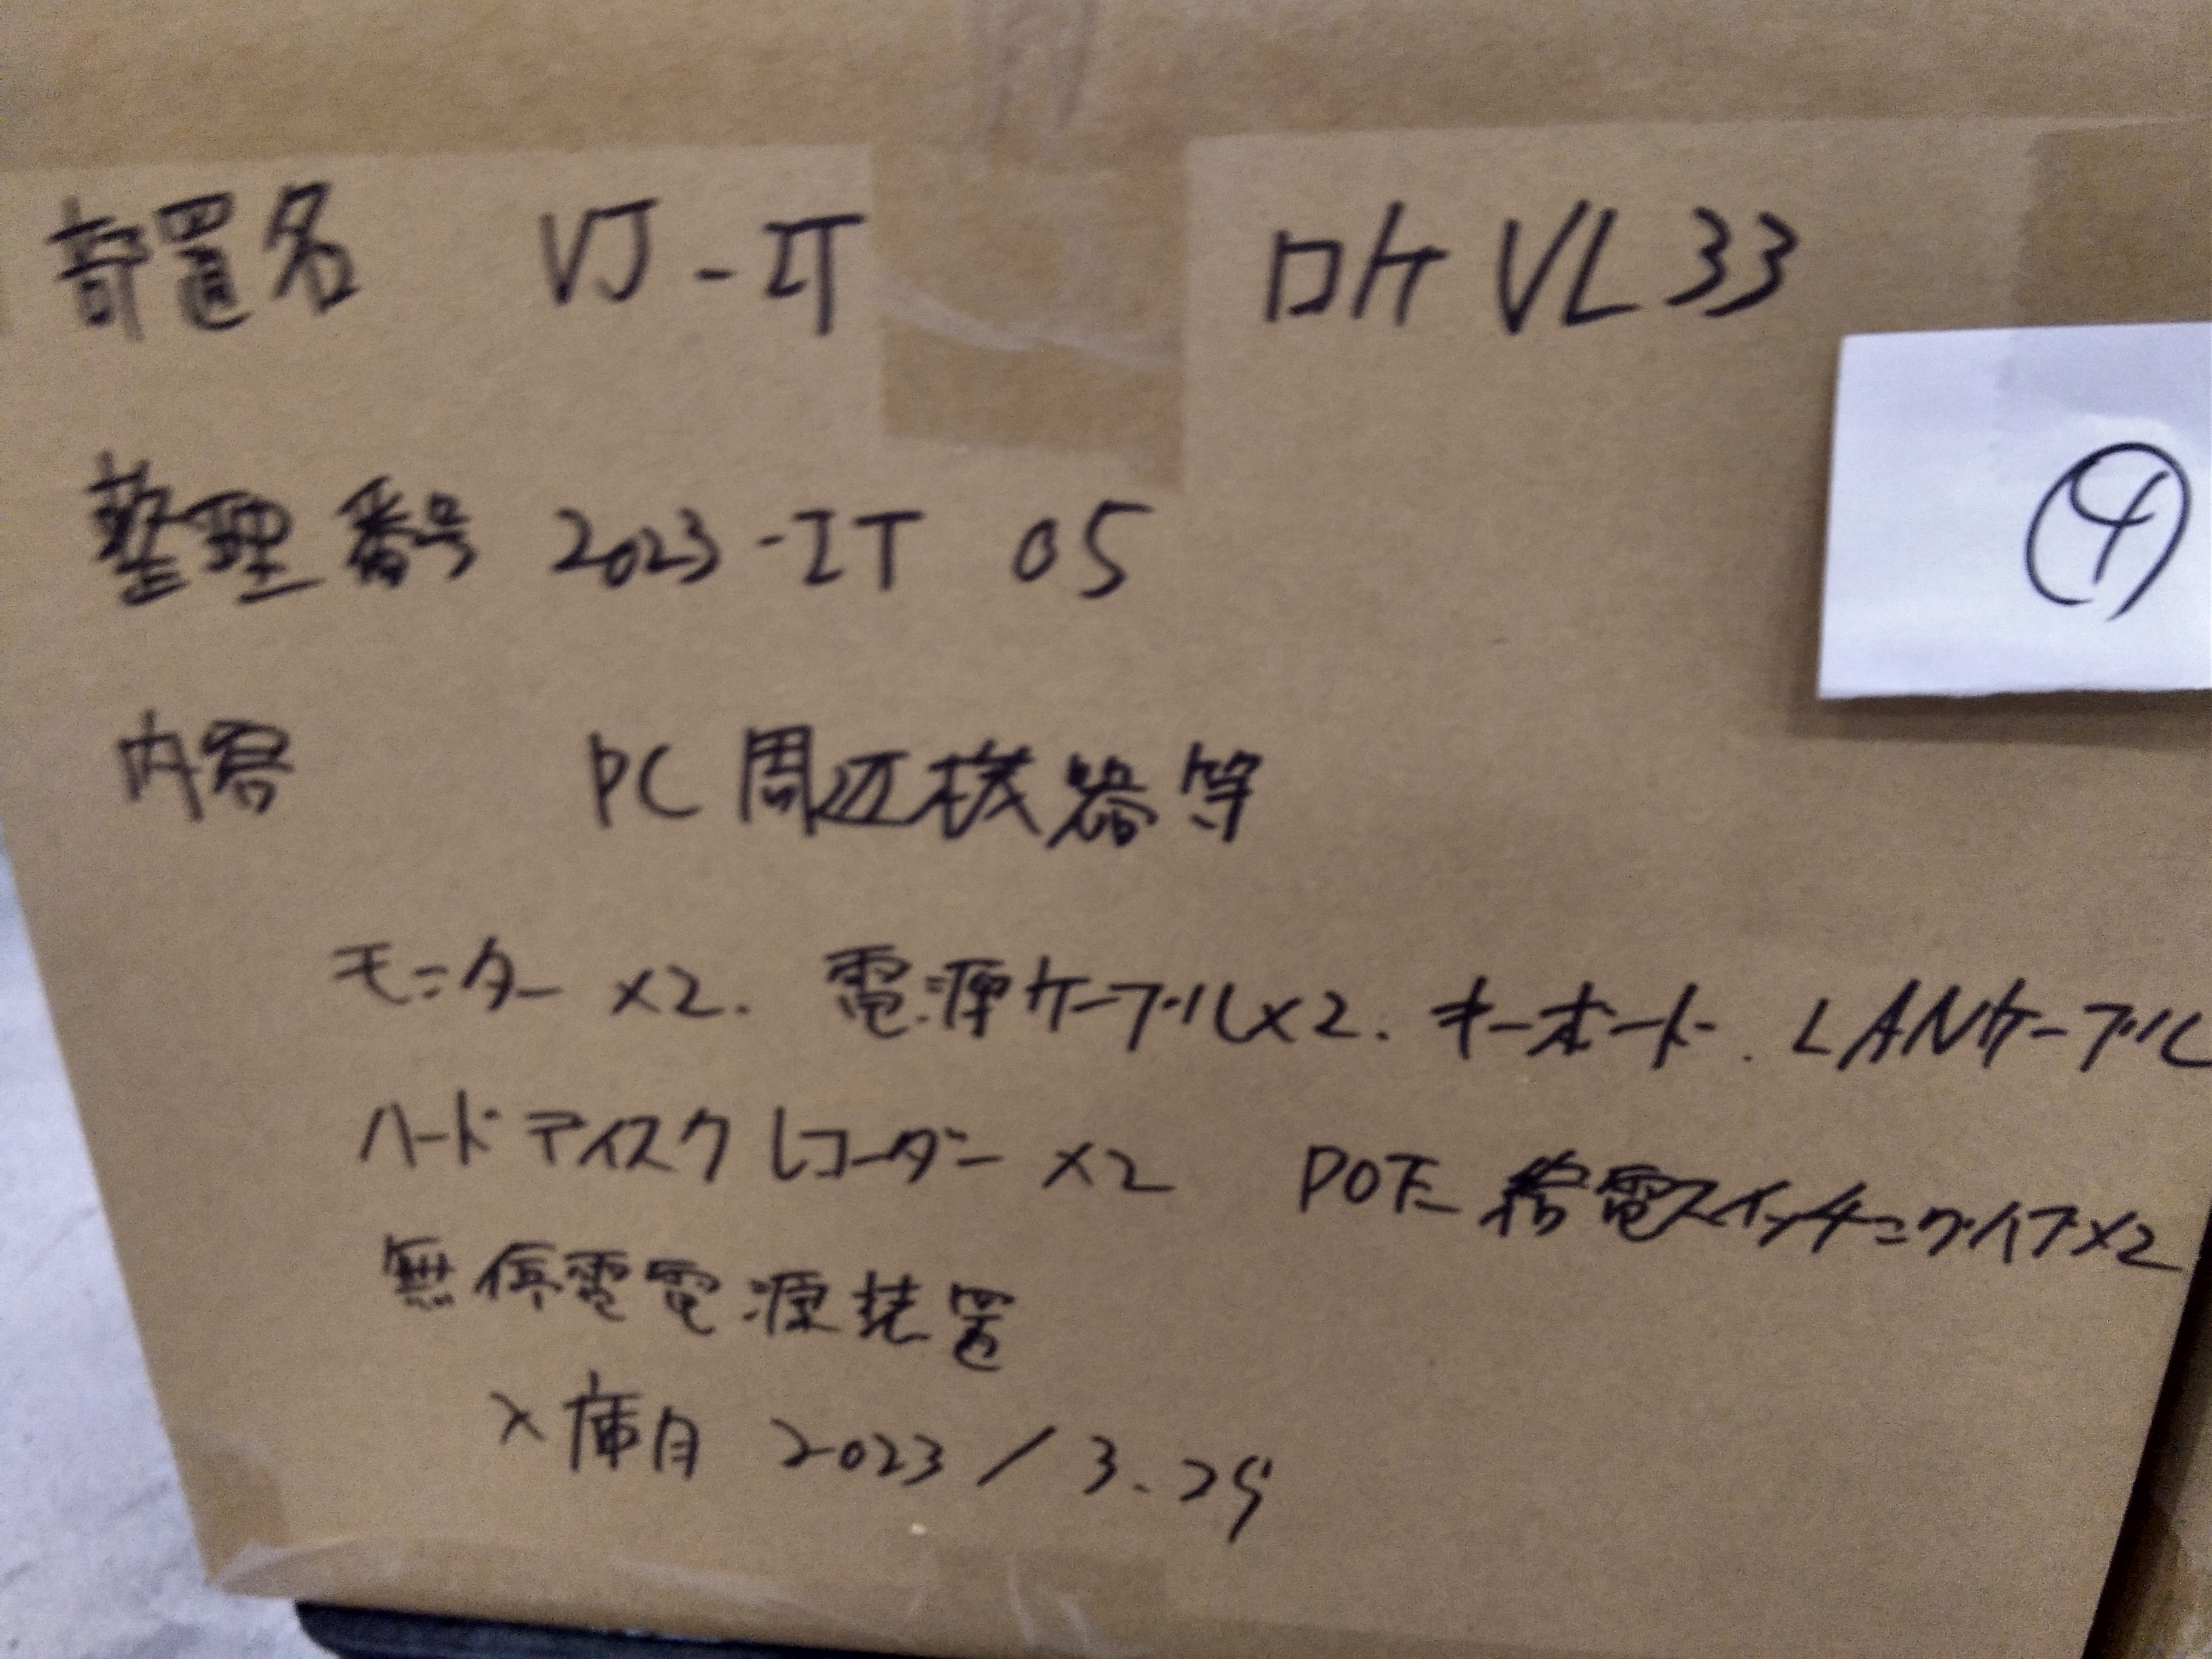 部置名 VJ-IT ロケ VL33
④
整理番号 2023-IT 05
内容 PC周辺機器等
モニター ×2. 電源ケーブル×2. キーボード. LANケーブル
ハードディスクレコーダー ×2 POE 給電スイッチングハブ×2
無停電電源装置
入庫月 2023/3.29